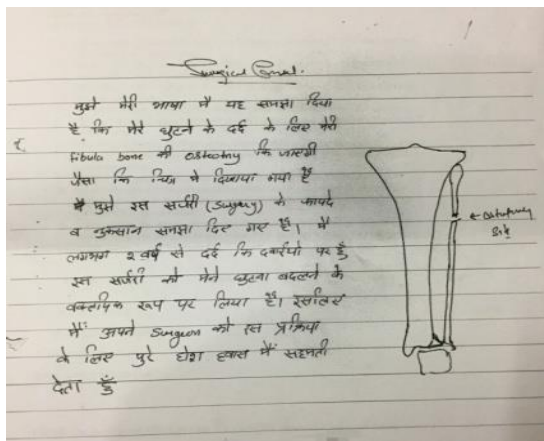 Surgical Consent.
मुझे मेरी भाषा में यह समझा दिया
है कि मेरे घुटने के दर्द के लिए मेरी
Fibula bone की osteotomy कि जाएगी
जैसा कि चित्र में दिखाया गया है
मुझे इस सर्जरी (Surgery) के फायदे
व नुकसान समझा दिए गए हैं। मैं
लगभग 2 वर्ष से दर्द कि दवाईयो पर हूँ
इस सर्जरी को मेने घुटना बदलने के
वकल्पिक रूप पर लिया है। इसलिए
मैं अपने Surgeon को इस प्रक्रिया
के लिए पुरे होश हवास में सहमती
देता हूँ
← Osteotomy
Site